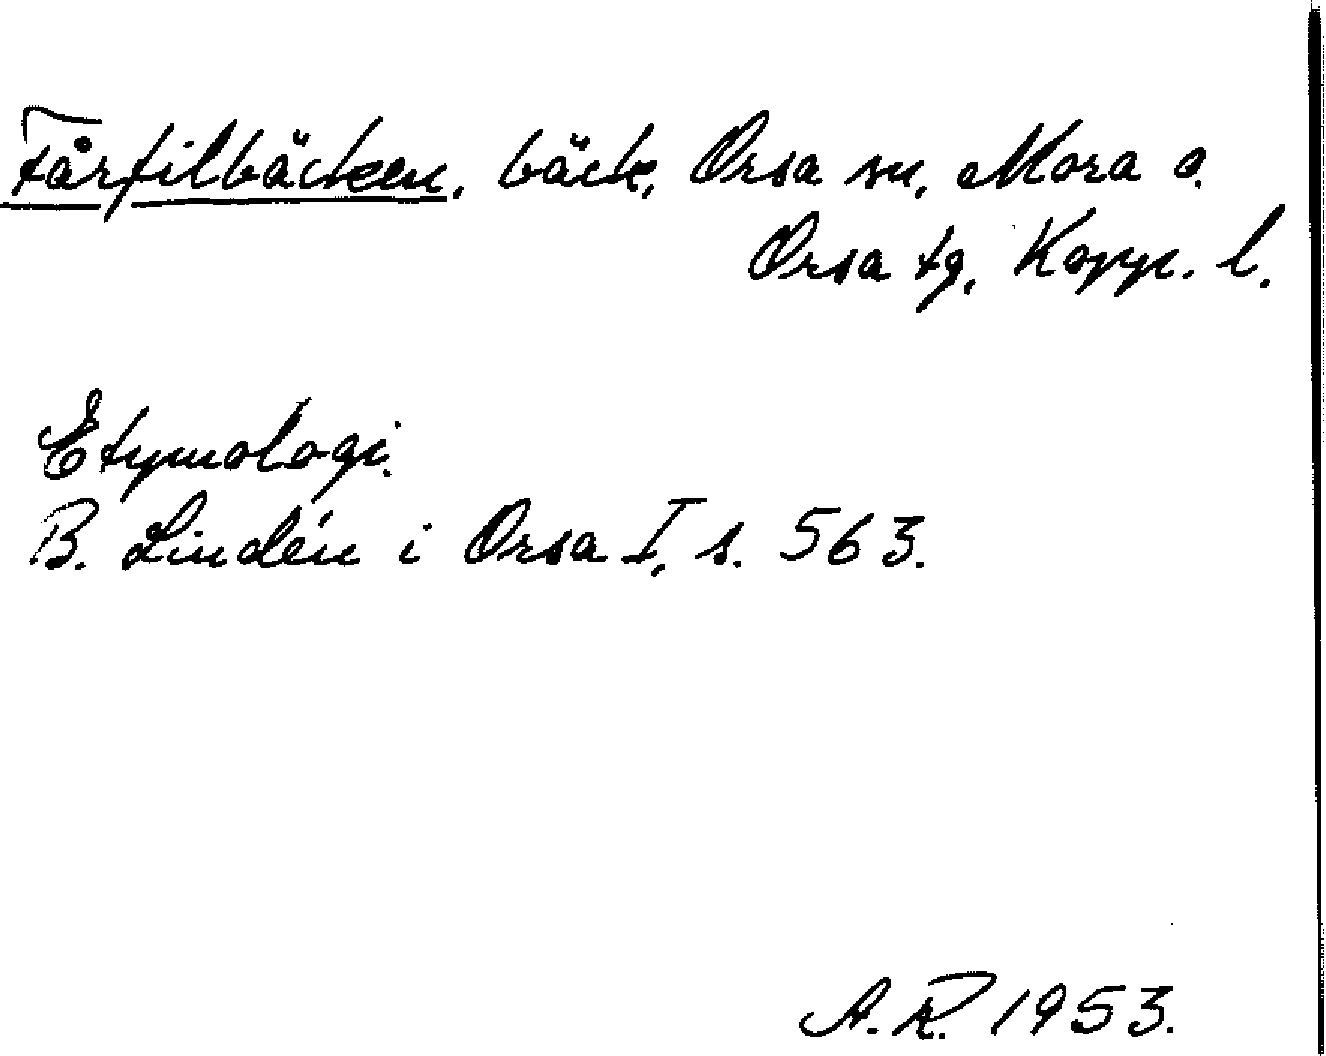 Fårfilbäcken, bäck, Orsa sn, Mora o.
Orsa tg, Kopp. l.
Etymologi.
B. Lindén i Orsa I, s. 563.
A.R. 1953.